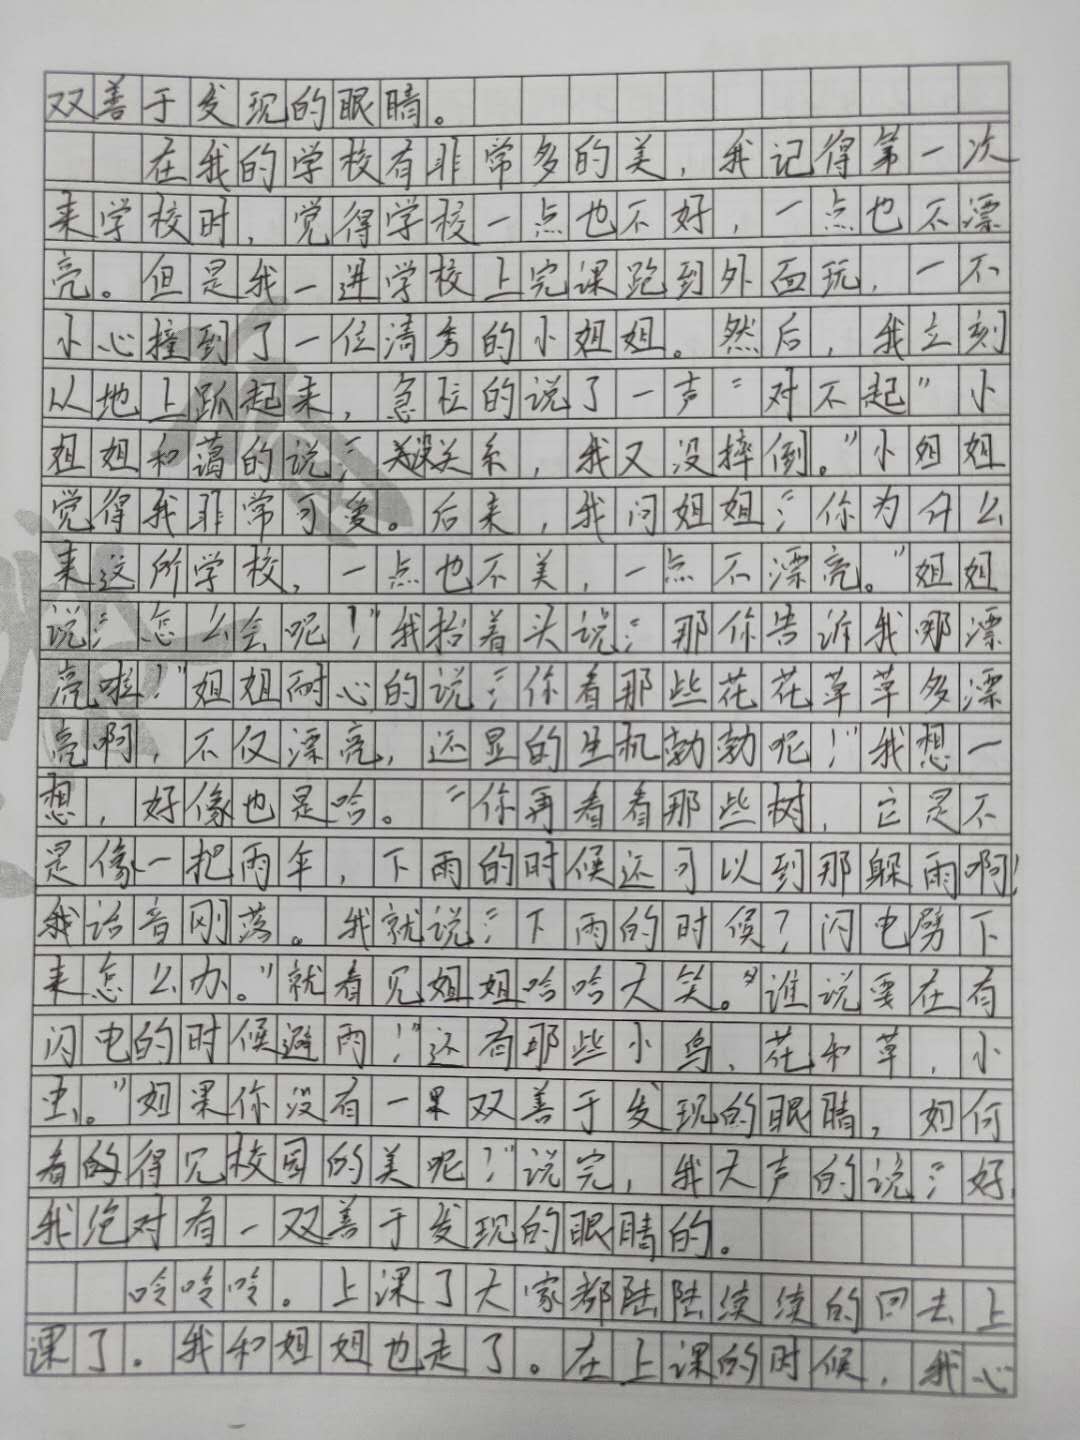 双善于发现的眼睛。
在我的学校有非常多的美，我记得第一次
来学校时，觉得学校一点也不好，一点也不漂
亮。但是我一进学校上完课跑到外面玩，一不
小心撞到了一位清秀的小姐姐。然后，我立刻
从地上趴起来，急忙的说了一声“对不起”小
姐姐和蔼的说：“没关系，我又没摔倒。”小姐姐
觉得我非常可爱。后来，我问姐姐：“你为什么
来这所学校，一点也不美，一点不漂亮。”姐姐
说：“怎么会呢！”我抬着头说：“那你告诉我哪漂
亮啦！”姐姐耐心的说：“你看那些花花草草多漂
亮啊，不仅漂亮，还显的生机勃勃呢！”我想一
想，好像也是哈。“你再看看那些树，它是不
是像一把雨伞，下雨的时候还可以到那躲雨啊！
我话音刚落。我就说：“下雨的时候？闪电劈下
来怎么办。”就看见姐姐哈哈大笑。“谁说要在有
闪电的时候避雨！”还有那些小鸟、花和草，小
虫。”如果你没有一双善于发现的眼睛，如何
看的得见校园的美呢？”说完，我大声的说：“好，
我绝对有一双善于发现的眼睛的。
呤呤呤。上课了大家都陆陆续续的回去上
课了。我和姐姐也走了。在上课的时候，我心